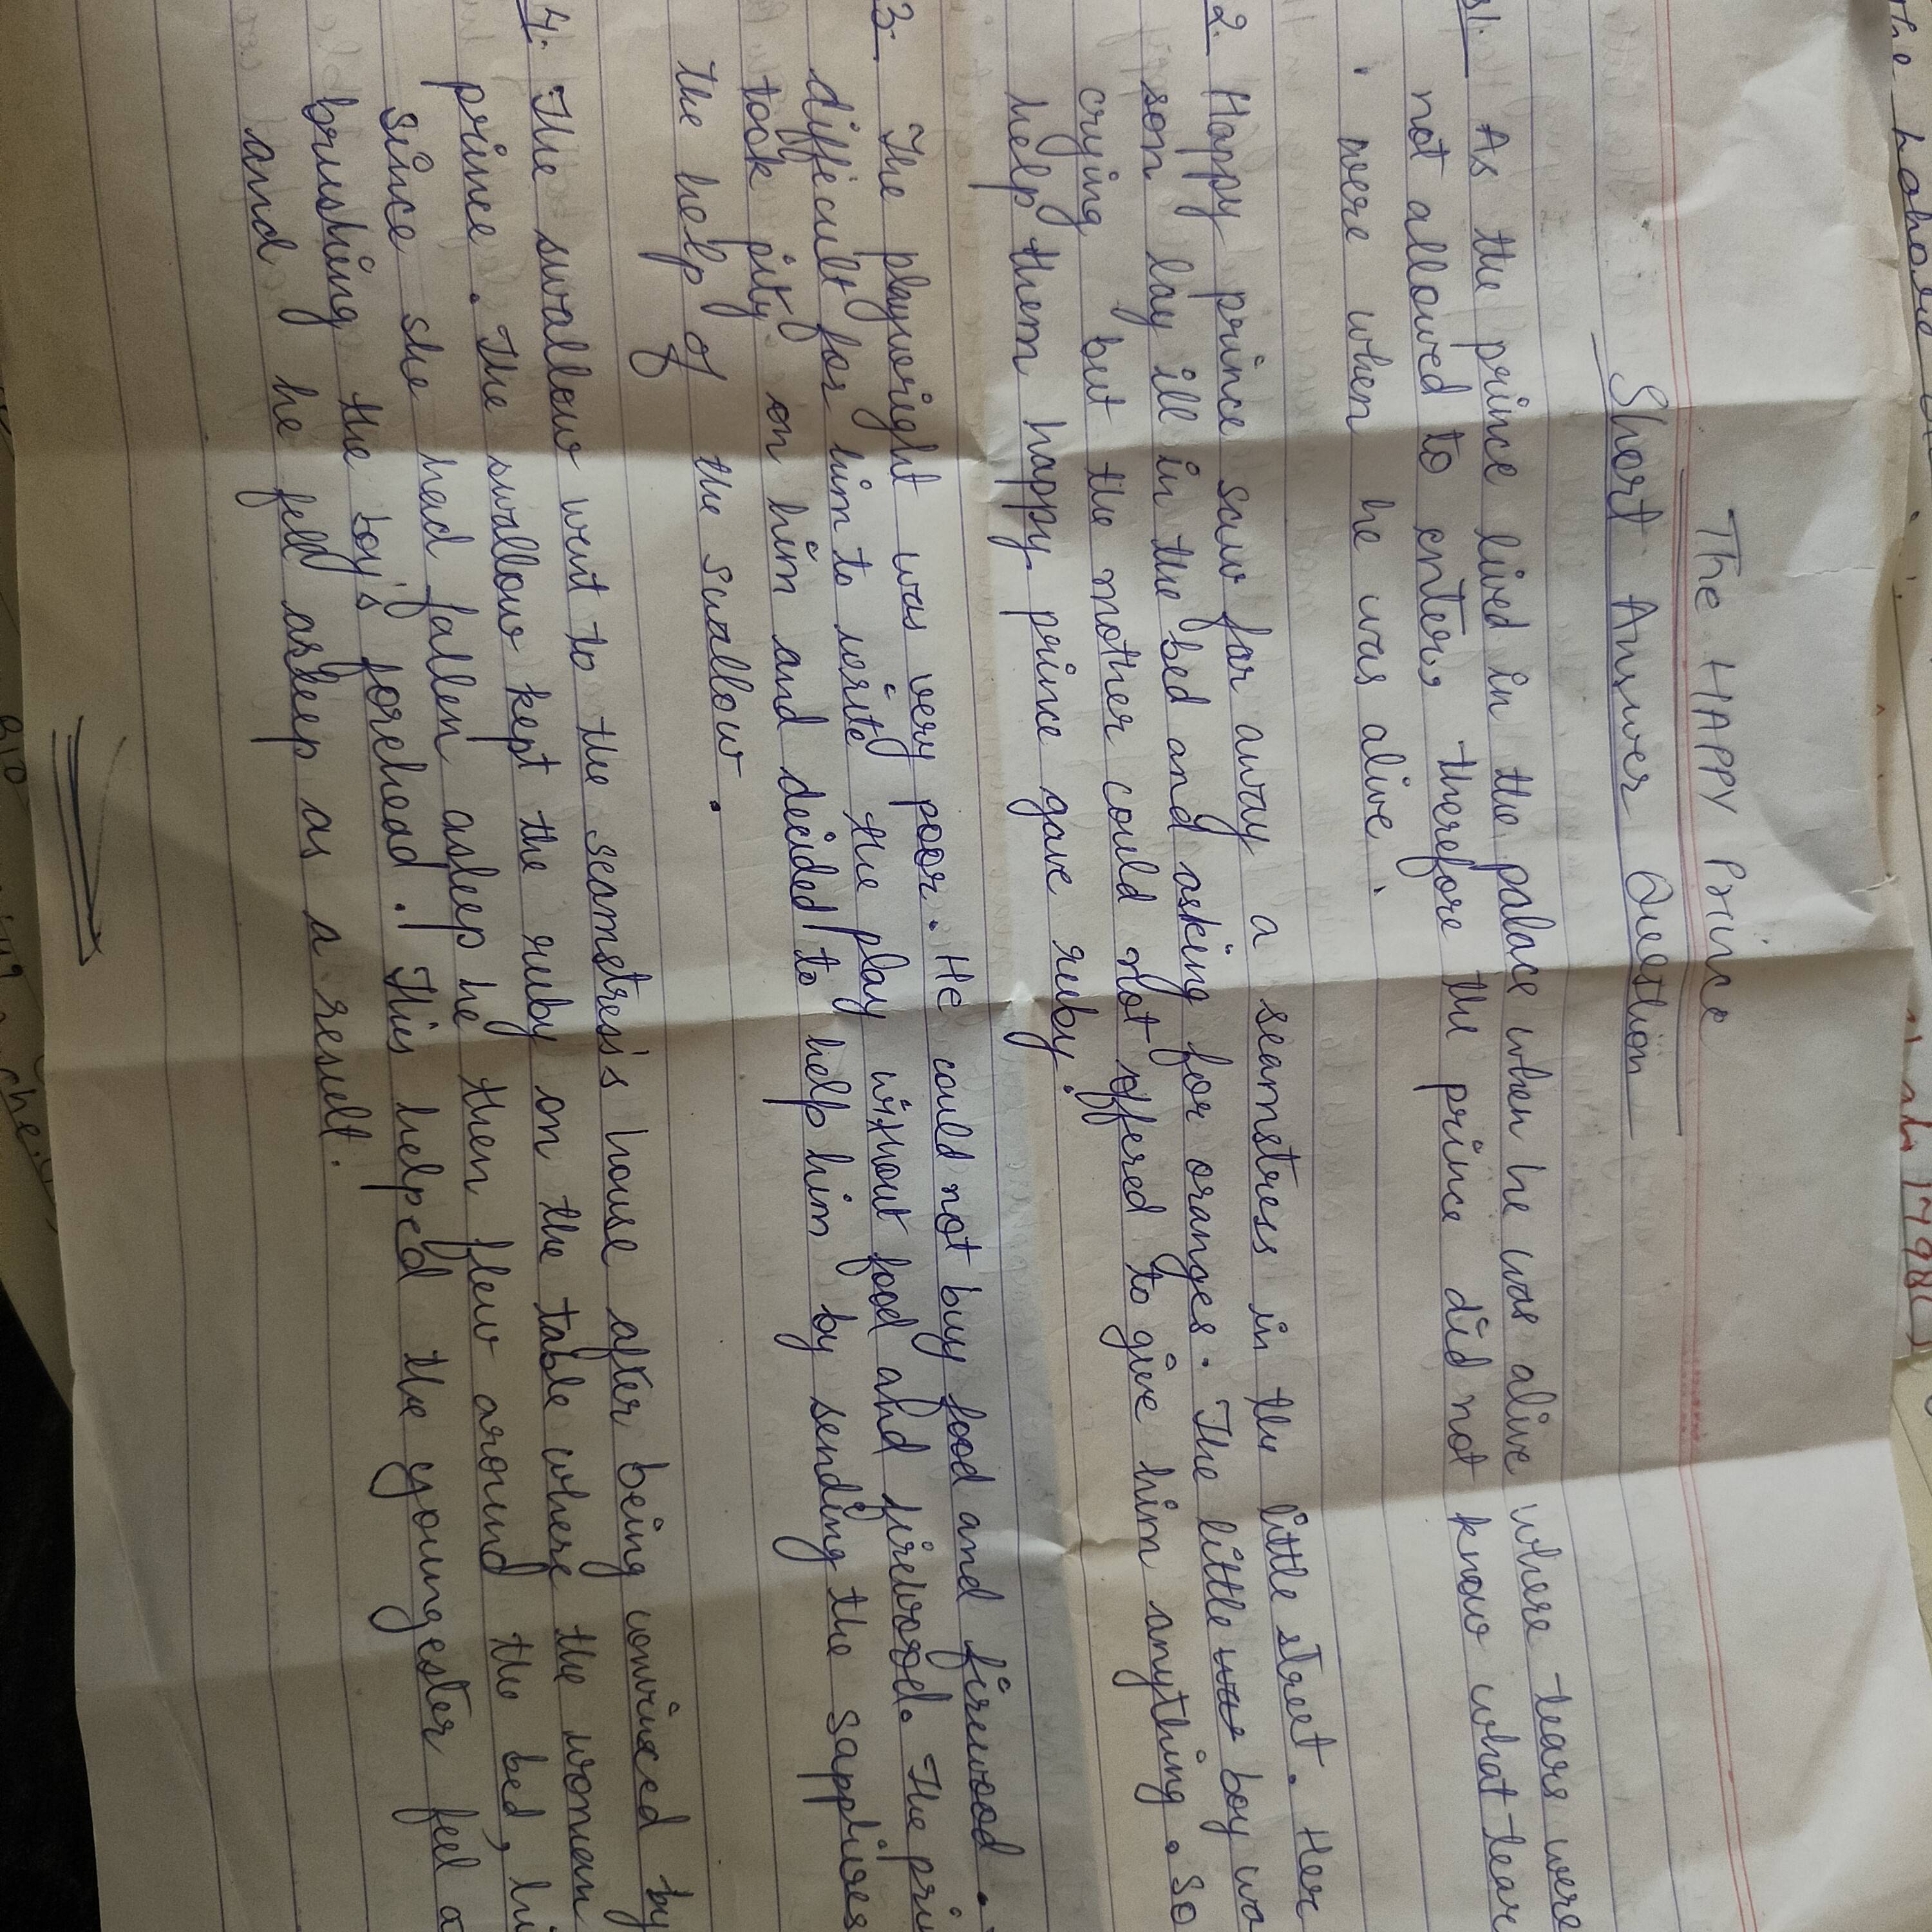 The HAPPY Prince
Short Answer Question
1. As the prince lived in the palace when he was alive where tears were
not allowed to enter, therefore the prince did not know what tear
were when he was alive.
2. Happy prince saw far away a seamstress in the little street. Her
son lay ill in the bed and asking for oranges. The little was boy wa
crying but the mother could not offered to give him anything. So
help them happy prince gave ruby.
3. The playwright was very poor. He could not buy food and firewood.
difficult for him to write the play without food and firewood. The pri
took pity on him and decided to help him by sending the sapphires
the help of the swallow.
4. The swallow went to the seamstress's house after being convinced by
prince. The swallow kept the ruby on the table where the woman
Since she had fallen asleep he then flew around the bed,
brushing the boy's forehead. This helped the youngester feel
and he fell asleep as a result.